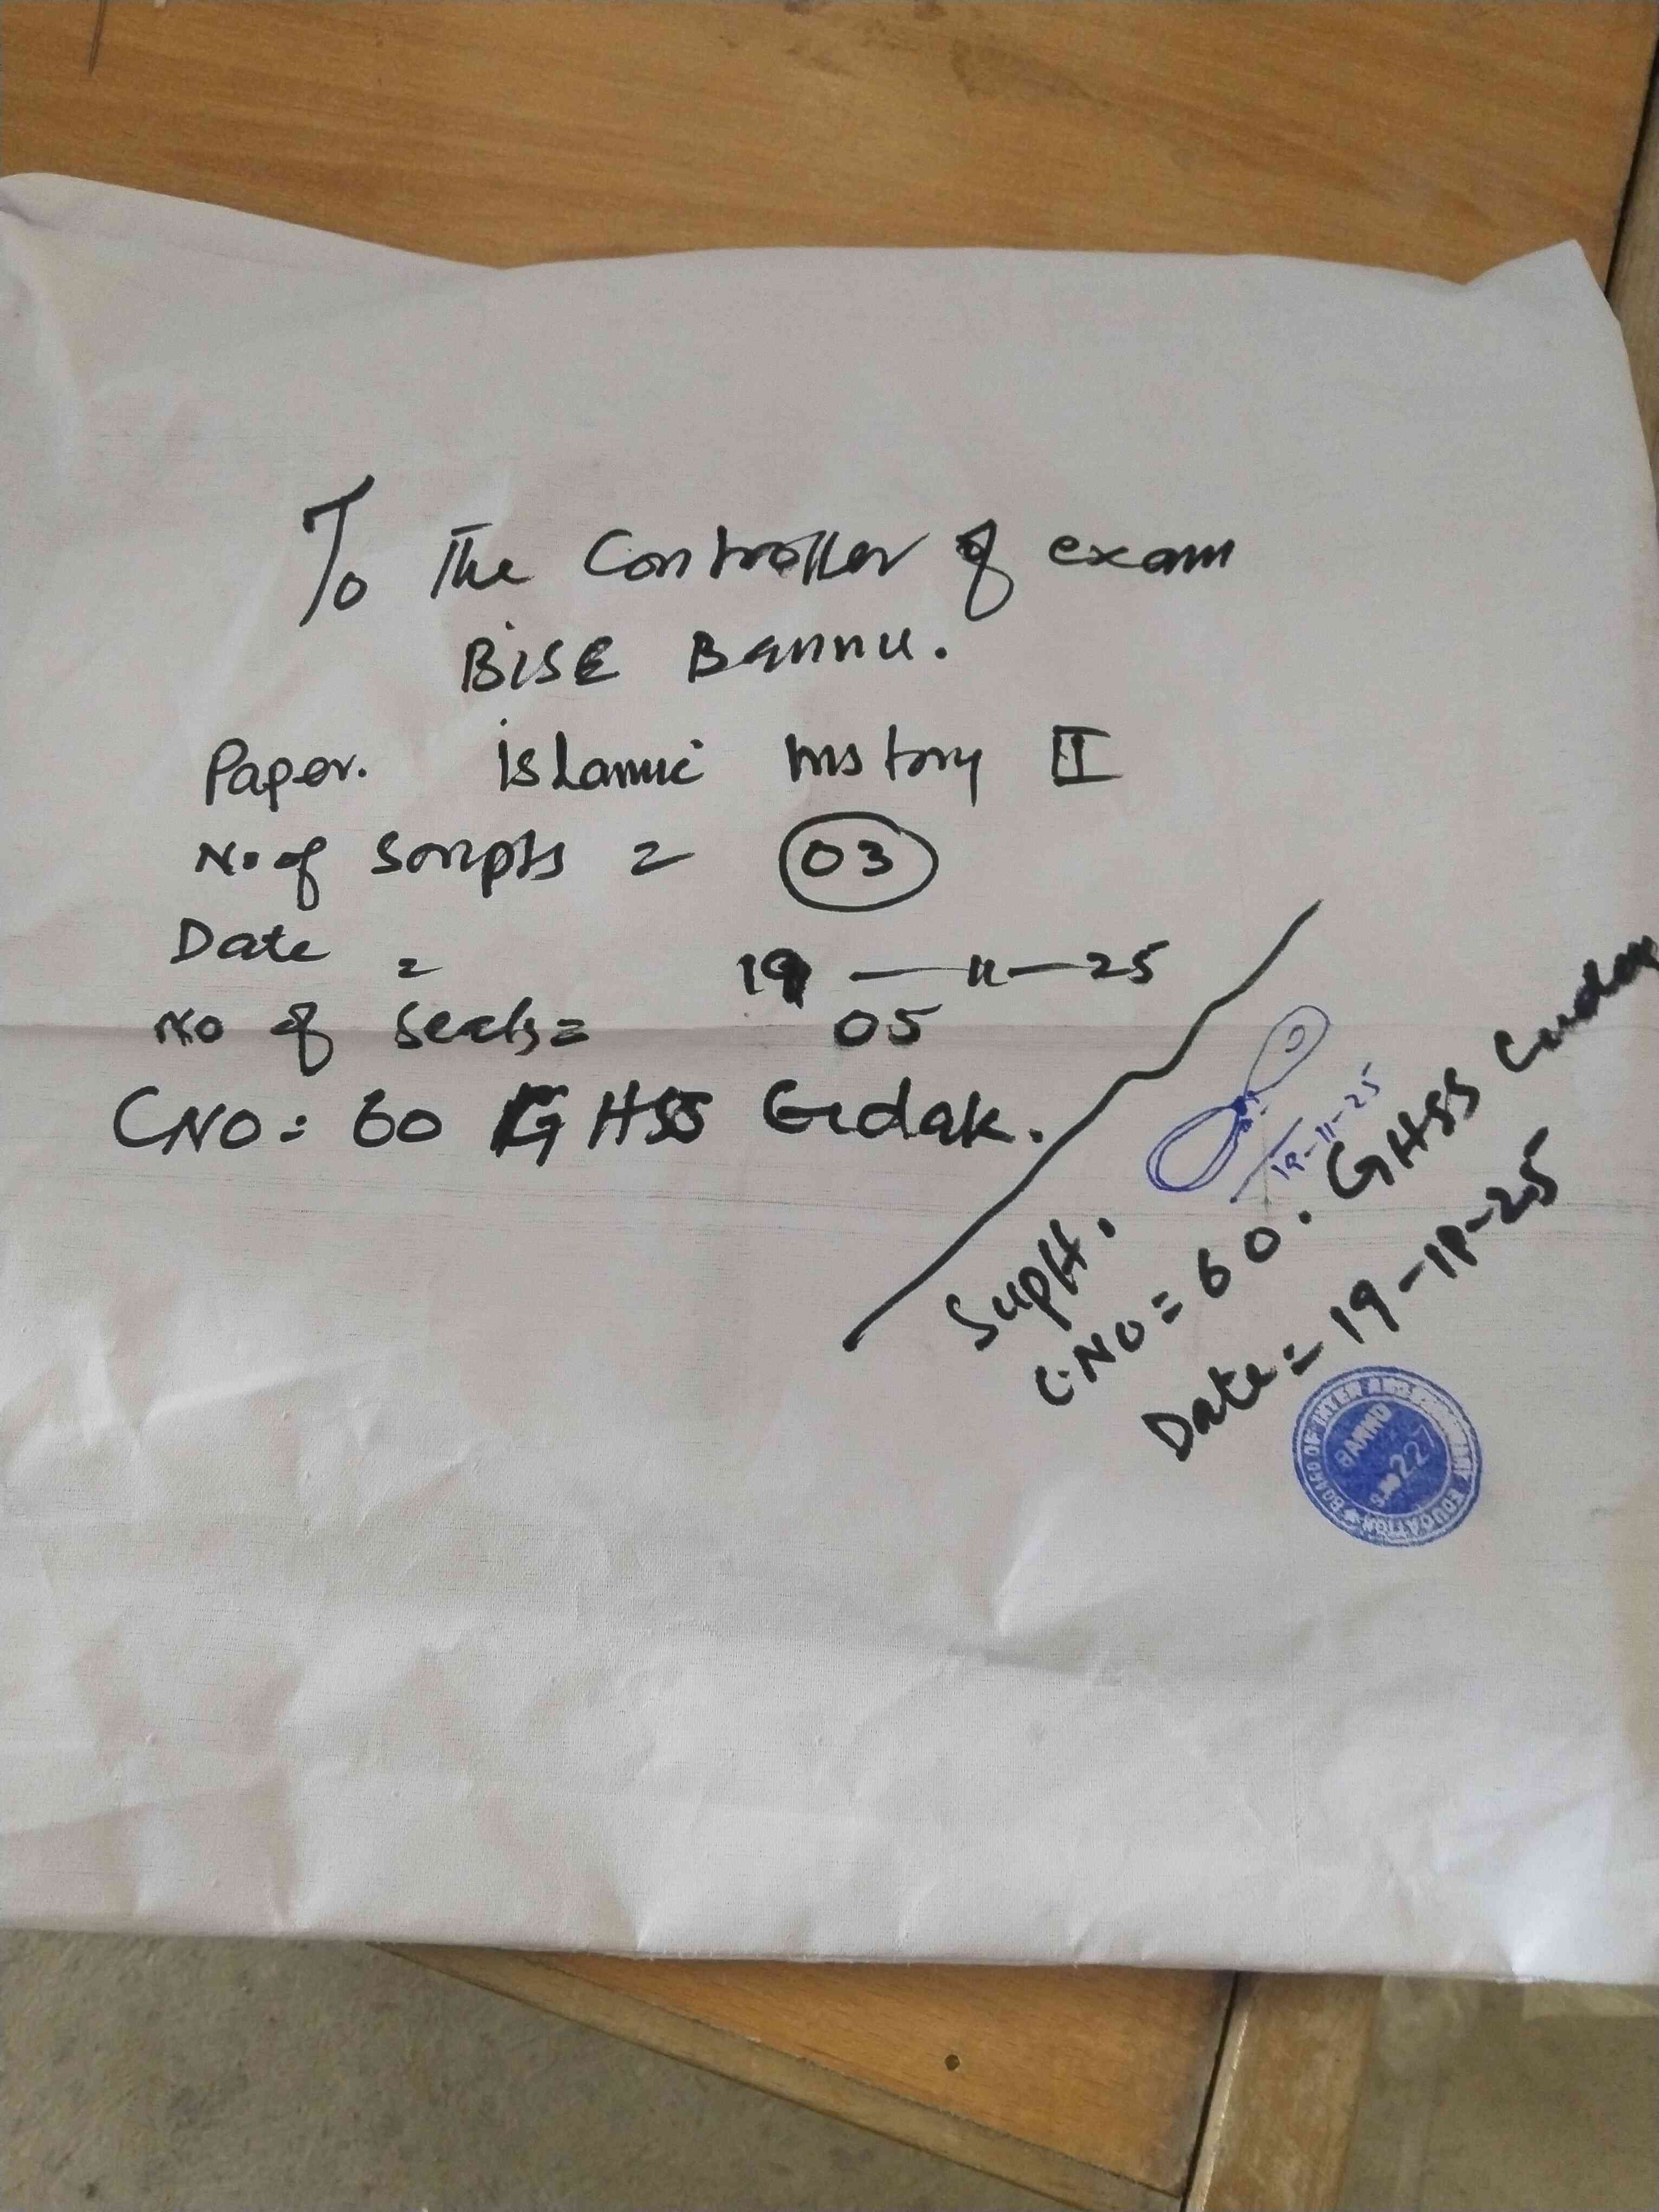 To The Controller of exam
BISE Bannu.
Paper. islamic history II
No of Scripts = 03
Date = 19-11-25
No of Seals = 05
CNO: 60 GHSS Gidak.
19-11-25
Supt.
C.NO = 60. GHSS
Date = 19-11-25
BOARD OF INTER AND SECONDARY EDUCATION
BANNU
S.NO 227